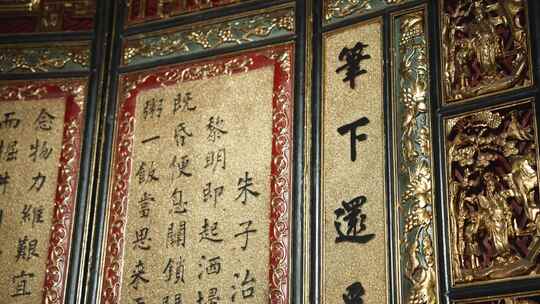 筆下還
朱子治
黎明即起洒掃
既昏便息關鎖
粥一飯當思来
念物力維艱宜
而掘井